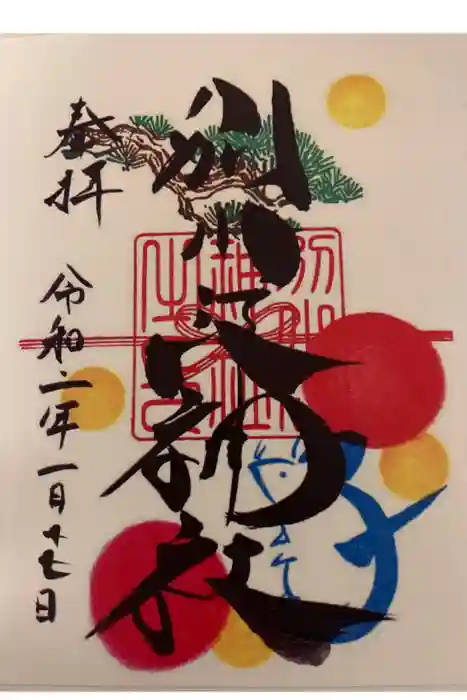 別小江神社
奉拝
令和二年一月十七日
子